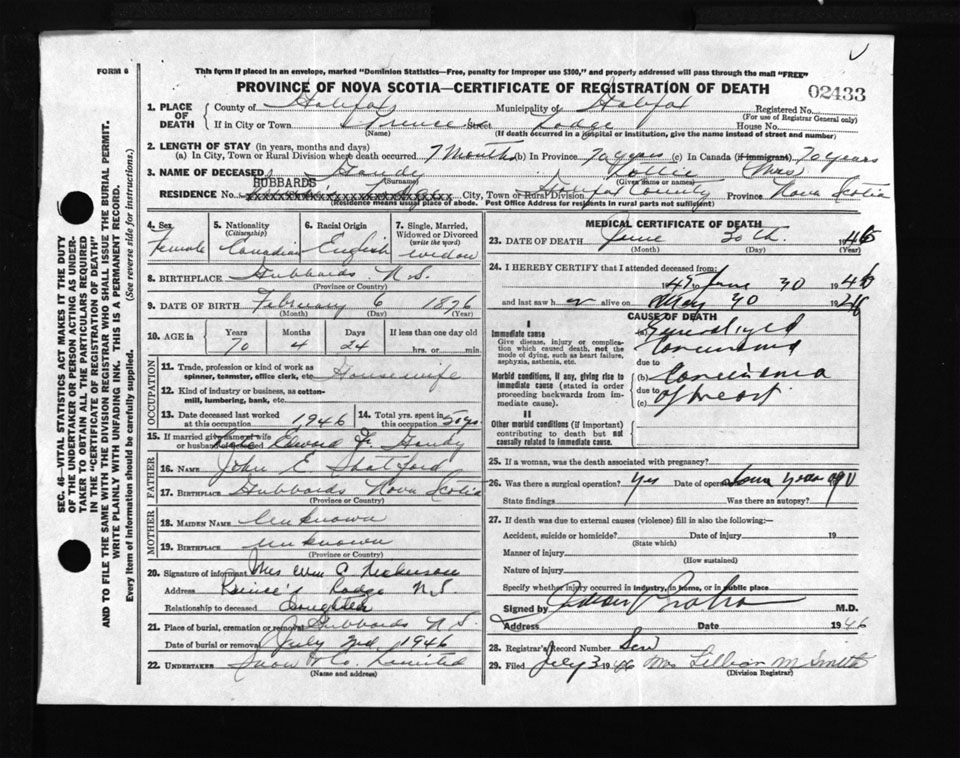 FORM 6
This form if placed in an envelope, marked "Dominion Statistics—Free, penalty for improper use $300," and properly addressed will pass through the mail "FREE"
PROVINCE OF NOVA SCOTIA—CERTIFICATE OF REGISTRATION OF DEATH
02433
1. PLACE OF DEATH County of Halifax Municipality of Halifax Registered No.
(For use of Registrar General only)
If in City or Town Prince's Street Lodge House No.
(Name) (If death occurred in a hospital or institution, give the name instead of street and number)
2. LENGTH OF STAY (in years, months and days)
(a) In City, Town or Rural Division where death occurred 7 Months (b) In Province 70 years (c) In Canada (if immigrant) 70 years
3. NAME OF DECEASED Gandy Lottie (Mrs)
(Surname) (Given name or names)
HUBBARDS
RESIDENCE No. City, Town or Rural Division Halifax County Province Nova Scotia
(Residence means usual place of abode. Post Office Address for residents in rural parts not sufficient)
4. Sex 5. Nationality (Citizenship) 6. Racial Origin 7. Single, Married, Widowed or Divorced (write the word)
Female Canadian English widow
8. BIRTHPLACE Hubbards N.S.
(Province or Country)
9. DATE OF BIRTH February 6 1876
(Month) (Day) (Year)
10. AGE in Years Months Days If less than one day old
70 4 24 hrs. or min.
OCCUPATION
11. Trade, profession or kind of work as spinner, teamster, office clerk, etc. Housewife
12. Kind of industry or business, as cotton-mill, lumbering, bank, etc.
13. Date deceased last worked at this occupation 1946 14. Total yrs. spent in this occupation 50 yrs.
15. If married give name of wife or husband Late Edward F. Gandy
FATHER
16. NAME John E Shatford
17. BIRTHPLACE Hubbards Nova Scotia
(Province or Country)
MOTHER
18. MAIDEN NAME Unknown
19. BIRTHPLACE Unknown
(Province or Country)
20. Signature of informant Mrs Wm C Nickerson
Address Prince's Lodge N.S.
Relationship to deceased Daughter
21. Place of burial, cremation or removal Hubbards N.S.
Date of burial or removal July 3rd, 1946
22. UNDERTAKER Snow & Co. Limited
(Name and address)
MEDICAL CERTIFICATE OF DEATH
23. DATE OF DEATH June 30th. 1946
(Month) (Day) (Year)
24. I HEREBY CERTIFY that I attended deceased from:
1945 to June 30 1946
and last saw her alive on May 30 1946
CAUSE OF DEATH
I
Immediate cause (a) Generalized
Give disease, injury or complication which caused death, not the mode of dying, such as heart failure, asphyxia, asthenia, etc.
Carcinoma
due to
Morbid conditions, if any, giving rise to immediate cause (stated in order proceeding backwards from immediate cause).
(b) Carcinoma
due to
(c) of breast
II
Other morbid conditions (if important) contributing to death but not causally related to immediate cause.
25. If a woman, was the death associated with pregnancy?
26. Was there a surgical operation? Yes Date of operation Some years ago
State findings Was there an autopsy?
27. If death was due to external causes (violence) fill in also the following:—
Accident, suicide or homicide? Date of injury 19
(State which)
Manner of injury
(How sustained)
Nature of injury
Specify whether injury occurred in industry, in home, or in public place
Signed by M.D.
Address Date 1946
28. Registrar's Record Number
29. Filed July 3 1946 Mrs Lillian M Smith
(Division Registrar)
SEC. 46—VITAL STATISTICS ACT MAKES IT THE DUTY
OF THE UNDERTAKER OR PERSON ACTING AS UNDER-
TAKER TO OBTAIN ALL THE PARTICULARS REQUIRED
IN THE "CERTIFICATE OF REGISTRATION OF DEATH"
AND TO FILE THE SAME WITH THE DIVISION REGISTRAR WHO SHALL ISSUE THE BURIAL PERMIT.
WRITE PLAINLY WITH UNFADING INK. THIS IS A PERMANENT RECORD.
Every item of information should be carefully supplied. (See reverse side for instructions.)